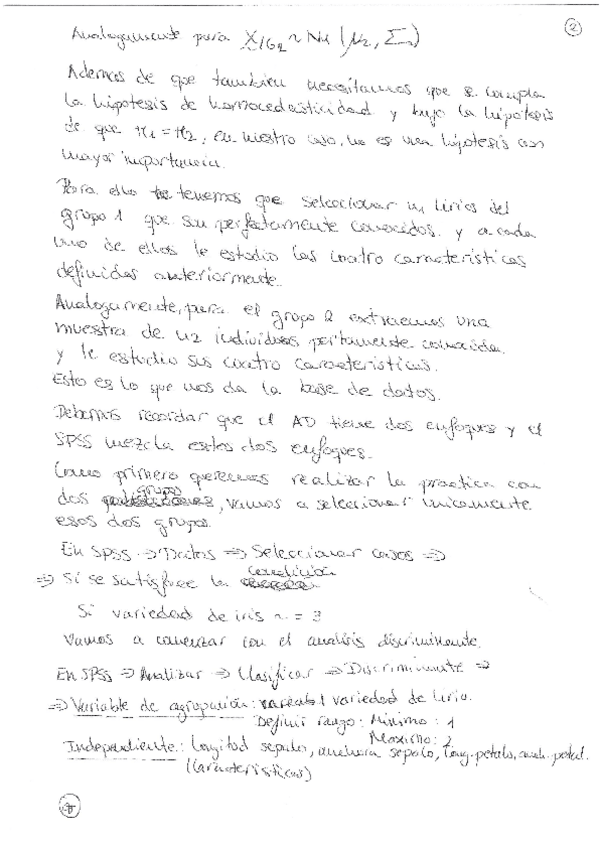 ②
Analogamente para X/G2 ~ N4 (μ2, Σ)
Ademas de que tambien necesitamos que se cumpla
la hipotesis de homocedasticidad y bajo la hipotesis
de que π1 = π2, en nuestro caso, no es una hipotesis con
mayor importancia.
Para ello tenemos que seleccionar n1 lirios del
grupo 1 que son perfectamente conocidos y a cada
uno de ellos le estudio las cuatro caracteristicas
definidas anteriormente.
Analogamente, para el grupo 2 extraemos una
muestra de n2 individuos conocida
y le estudio sus cuatro caracteristicas.
Esto es lo que nos da la base de datos.
Debemos recordar que el AD tiene dos enfoques y el
SPSS mezcla estos dos enfoques.
Como primero queremos realizar la practica con
dos grupos, vamos a seleccionar unicamente
esos dos grupos.
En SPSS ⇒ Datos ⇒ Seleccionar casos ⇒
⇒ Si se satisface la condición
Si variedad de iris ~ = 3
Vamos a comenzar con el analisis discriminante.
En SPSS ⇒ Analizar ⇒ Clasificar ⇒ Discriminante ⇒
⇒ Variable de agrupación: variedad de lirio.
Definir rango: Minimo: 1
Maximo: 2
Independiente: Longitud sepalo, anchura sepalo, long. petalo, anch. petal.
(Caracteristicas)